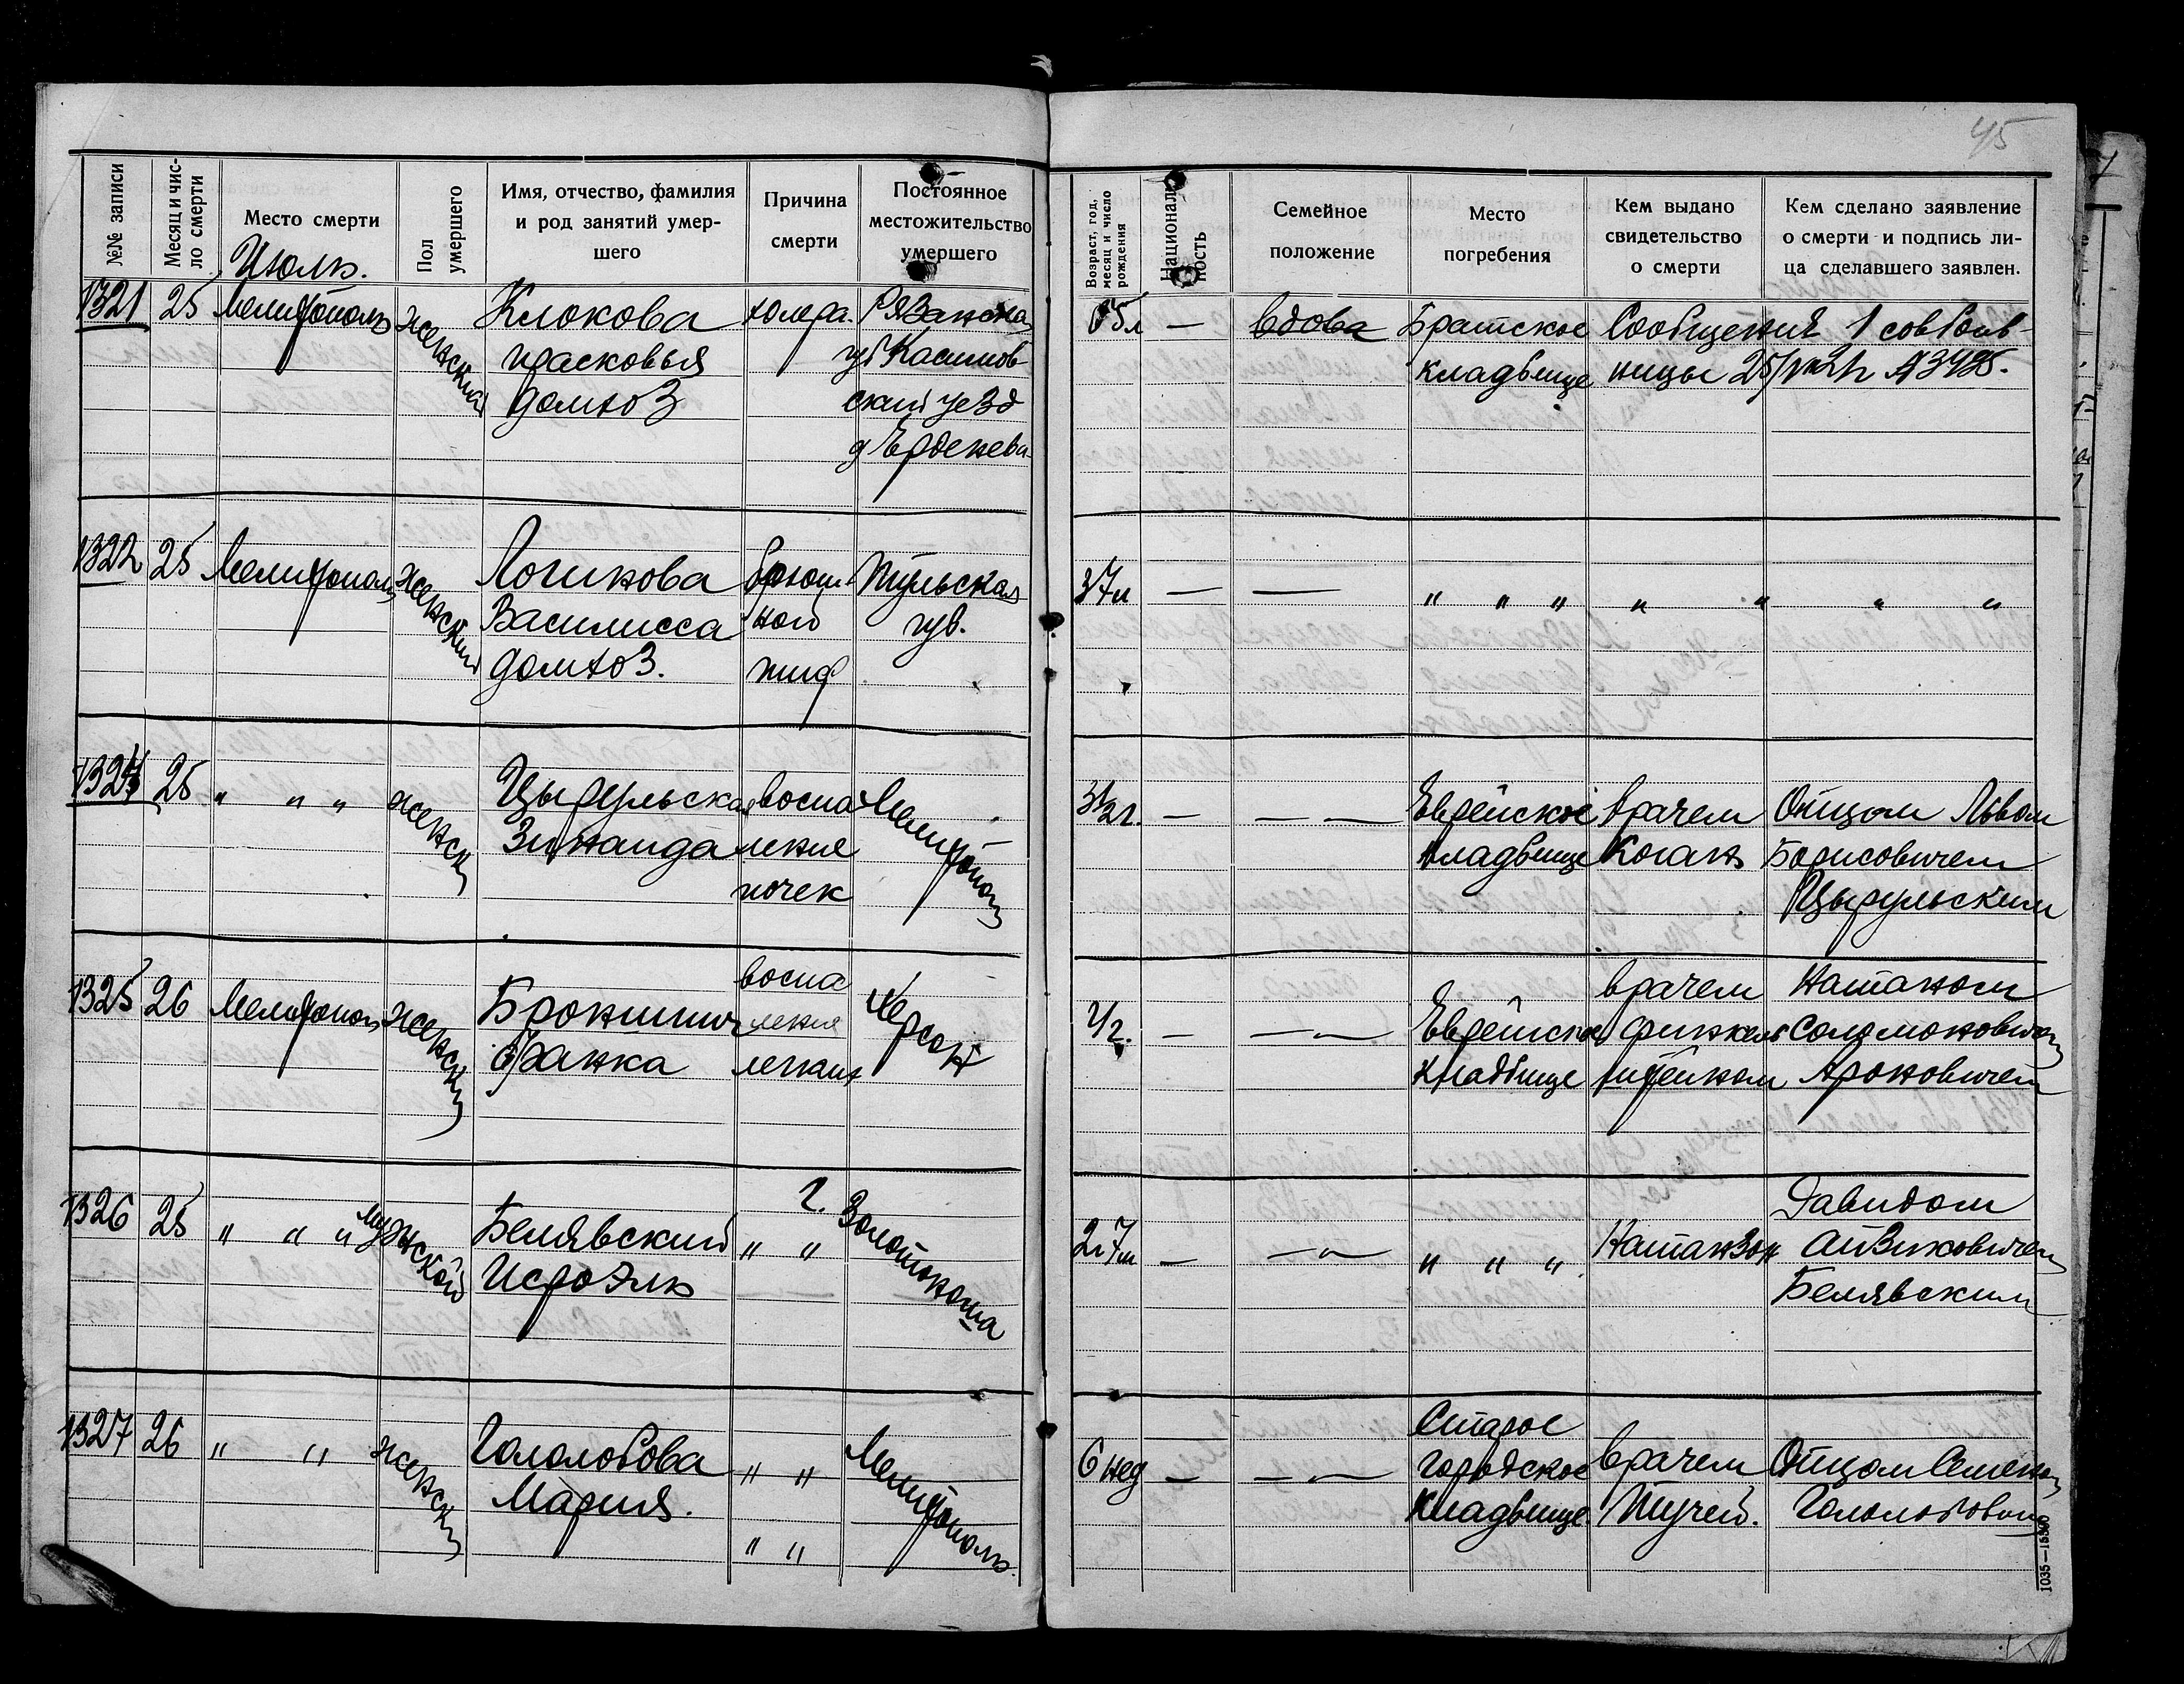 45
№№ записи
Месяц и чис-
ло смерти
Место смерти
Пол
умершего
Имя, отчество, фамилия
и род занятий умер-
шего
Причина
смерти
Постоянное
местожительство
умершего
Возраст, год,
месяц и число
рождения
Националь-
ность
Семейное
положение
Место
погребения
Кем выдано
свидетельство
о смерти
Кем сделано заявление
о смерти и подпись ли-
ца сделавшего заявлен.
Июль.
1321 25 Мелитополь женский Клокова холера. Рязанская 65л — вдова Братское Сообщения 1 сов боль-
прасковья губ Касимов кладбище ницы 25/
домхоз ский уезд
д Ерденева
1322 25 Мелитополь женский Логинова брюш Тульская 37л — — " " " " " " "
Василисса ной губ.
домхоз. тиф
1324 25 " " " женск Цырульская воспа Мелитополь 3½г. — — — Еврейское врачем Отцом Львом
Зинаида ление кладбище Коган Борисовичем
почек Цырульским
1325 26 Мелитополь женский воспа Херсон ½г. — — — врачем Натаном
ление Еврейское Соломоновичем
Фанка легких кладбище Ароновичем
1326 25 " " " мужской Белявский " " г. Золотоноша 2г 7м — — — " " " Натанзон Давидом
Исроэль Айзиковичем
Белявским
1327 26 " " женский Гололобова " " Мелитополь. 6 нед — — — Старое
городское врачем Отцом Семеном
Мария. " " кладбище. Тучей. Гололобовым
1035—15500